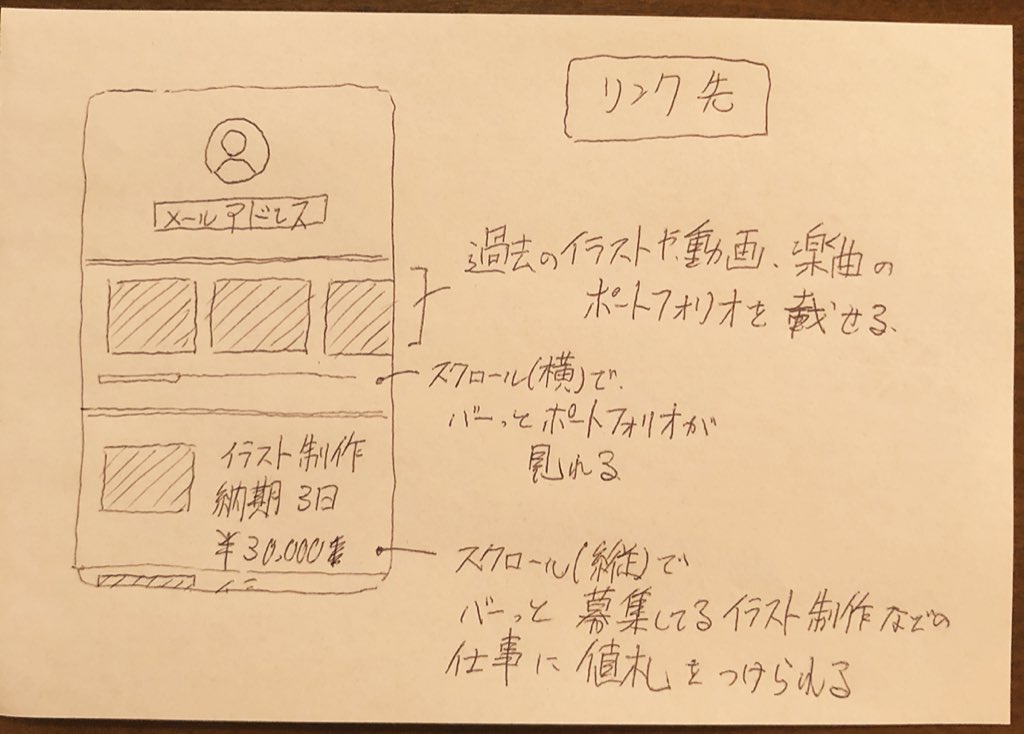 リンク先
メールアドレス
過去のイラストや動画、楽曲の
ポートフォリオを載せる、
スクロール(横)で、
バーっとポートフォリオが
見れる
イラスト制作
納期 3日
¥30,000
スクロール(縦)で
バーっと募集してるイラスト制作などの
仕事に値札をつけられる